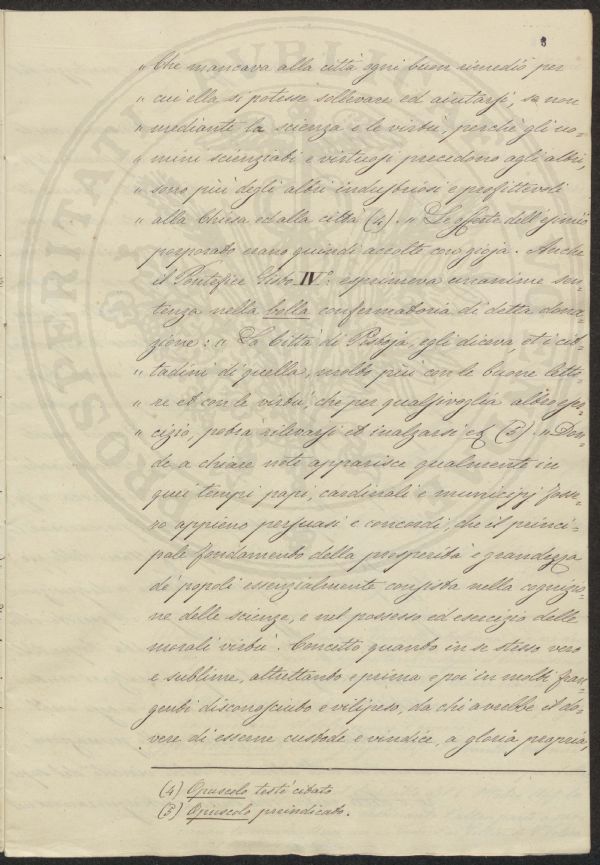 8
„ Che mancava alla città ogni buon rimedio per
„ cui ella si potesse sollevare ed aiutarsi, se non
„ mediante la scienza e le virtù, perchè gli uo-
„ mini scienziati e virtuosi precedono agli altri,
„ sono più degli altri industriosi e profittevoli
„ alla Chiesa ed alla città (4). „ Le offerte dell'esimio
porporato erano quindi accolte con gioja. Anche
il Pontefice Sisto IV.° esprimeva unanime sen-
tenza nella bolla confermatoria di detta dona-
zione: „ La Città di Pistoja, egli diceva, et i cit-
„ tadini di quella, molto più con le buone lette-
„ re et con le virtù, che per qualsivoglia altro eser-
„ cizio, potrà rilevarsi et inalzarsi (5). „ Don-
de a chiare note apparisce qualmente in
quei tempi papi, cardinali e municipj fosse-
ro appieno persuasi e concordi, che il princi-
pale fondamento della prosperità e grandezza
de' popoli essenzialmente consista nella cognizio-
ne delle scienze, e nel possesso ed esercizio delle
morali virtù. Concetto quanto in se stesso vero
e sublime, altrettanto e prima e poi in molti fran-
genti disconosciuto e vilipeso, da chi avrebbe il do-
vere di esserne custode e vindice, a gloria propria,
(4) Opuscolo testè citato
(5) Opuscolo preindicato.